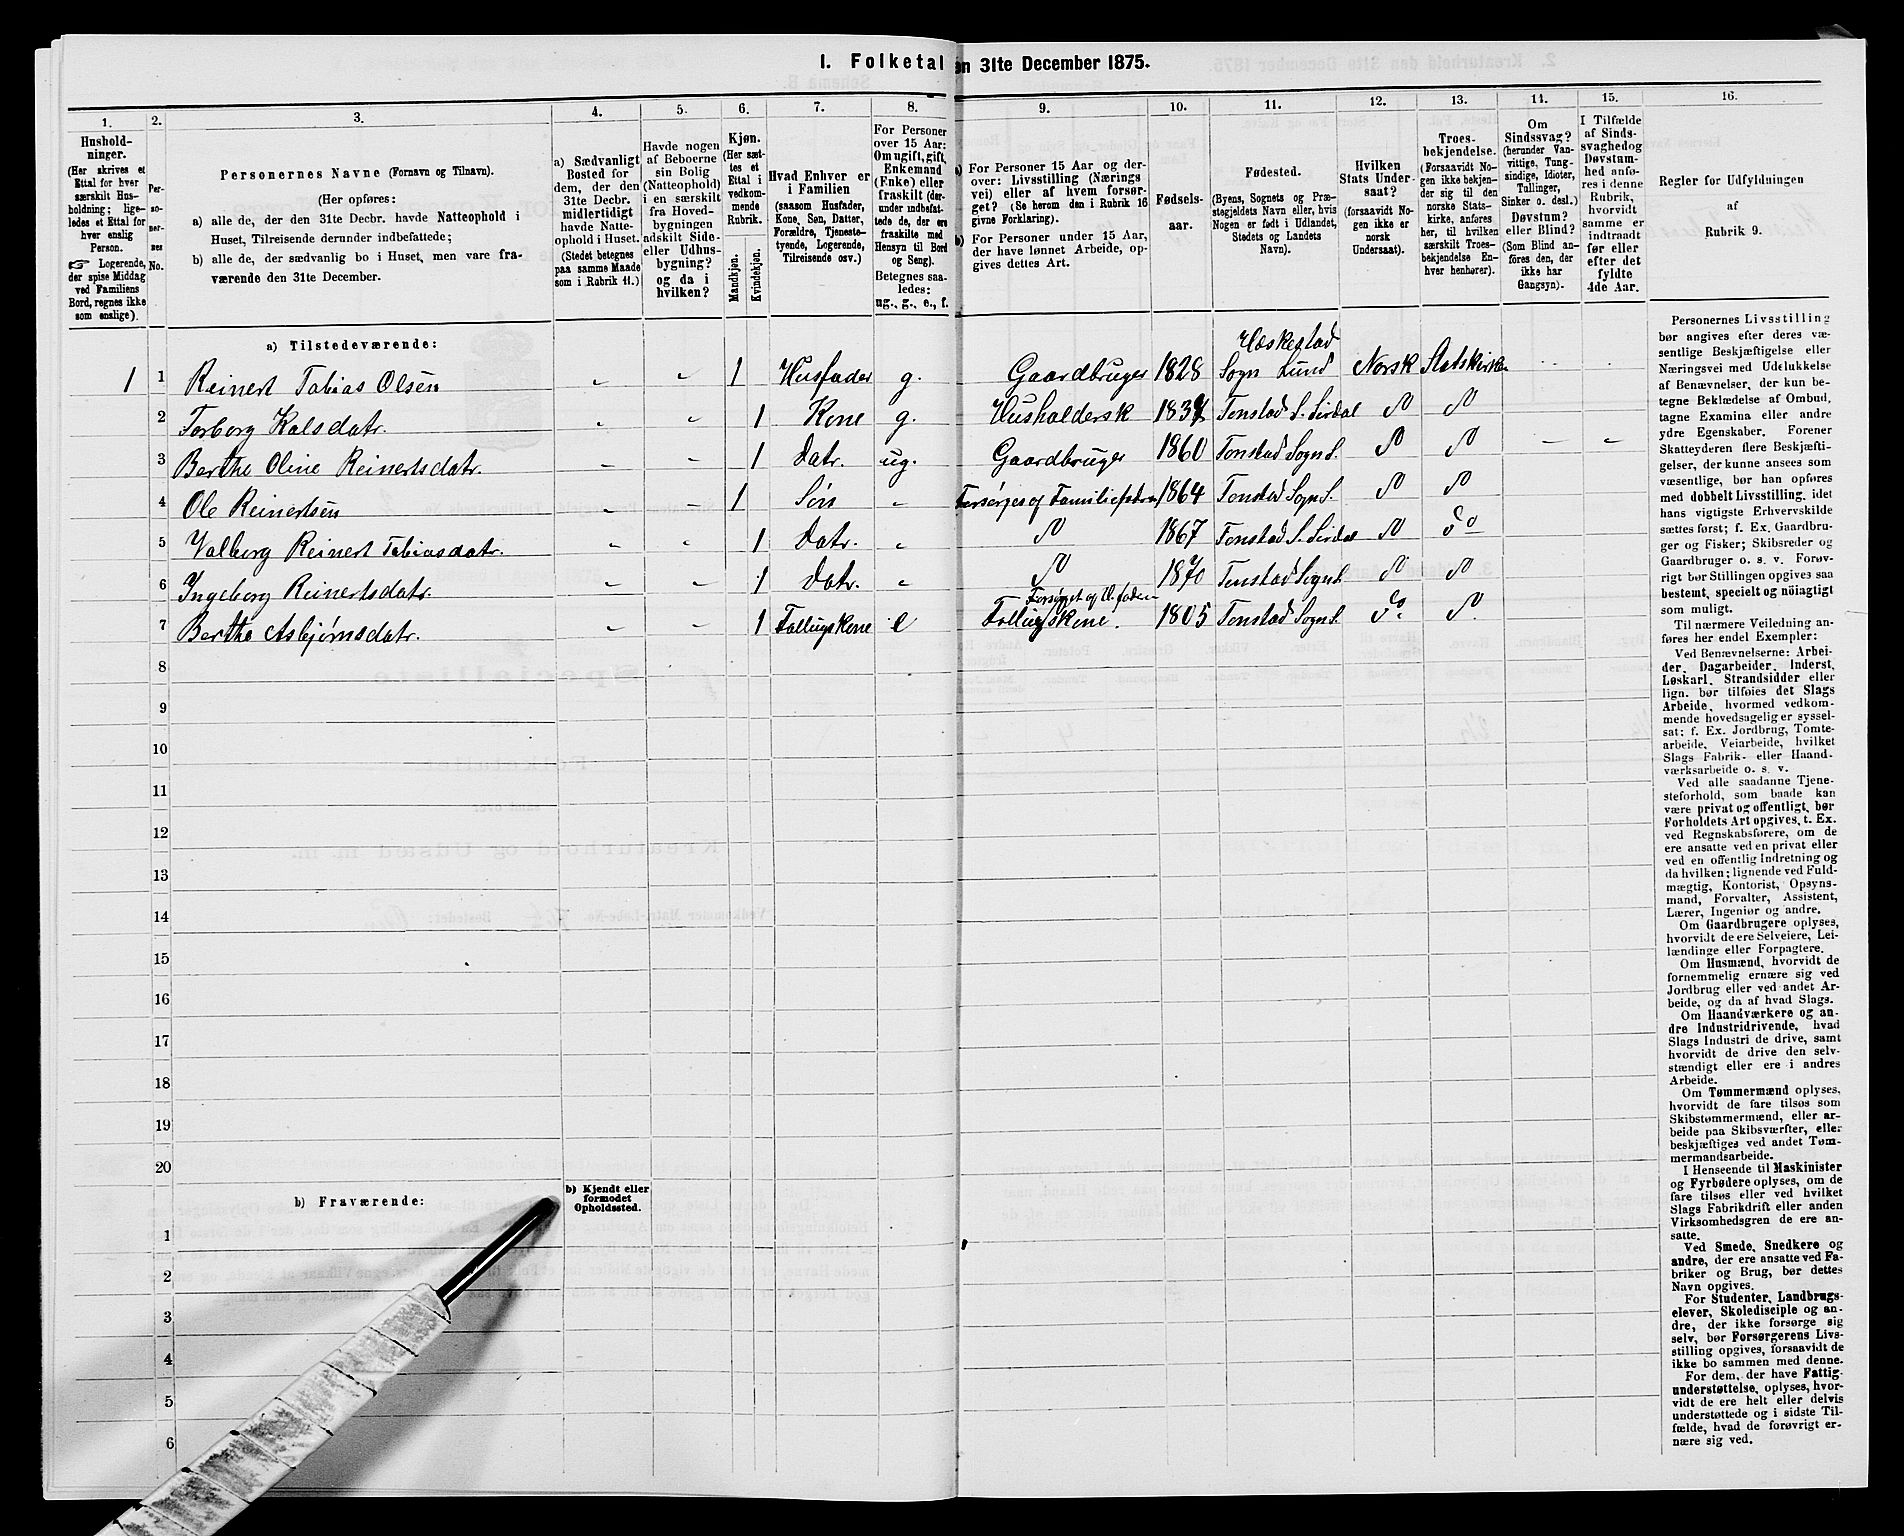 I. Folketal
en 31te December 1875.
1.
2.
3.
4.
5.
6.
7.
8.
9.
10.
11.
12.
13.
14.
15.
16.
Hushold-
ninger.
(Her skrives et
Ettal for hver
særskilt Hus-
holdning; lige-
ledes et Ettal for
hver enslig
Person.
☞ Logerende,
der spise Middag
ved Familiens
Bord, regnes ikke
som enslige).
Per-
so-
ner-
nes
No.
Personernes Navne (Fornavn og Tilnavn).
(Her opføres:
a) alle de, der den 31te Decbr. havde Natteophold i
Huset, Tilreisende derunder indbefattede;
b) alle de, der sædvanlig bo i Huset, men vare fra-
værende den 31te December.
a) Sædvanligt
Bosted for
dem, der den
31te Decbr.
midlertidigt
havde Natte-
ophold i Huset.
(Stedet betegnes
paa samme Maade
som i Rubrik 11.)
Havde nogen
af Beboerne
sin Bolig
(Natteophold)
i en særskilt
fra Hoved-
bygningen
adskilt Side-
eller Udhus-
bygning?
og da i
hvilken?
Kjøn.
(Her sæt-
tes et
Ettal i
vedkom-
mende
Rubrik.
Mandkjøn.
Kvindekjøn.
Hvad Enhver er
i Familien
(saasom Husfader,
Kone, Søn, Datter,
Forældre, Tjeneste-
tyende, Logerende,
Tilreisende osv.)
For Personer
over 15 Aar:
Om ugift, gift,
Enkemand
(Enke) eller
fraskilt (der-
under indbefat-
tede de, der ere
fraskilte med
Hensyn til Bord
og Seng).
Betegnes saa-
ledes:
ug., g., e., f.
a) For Personer 15 Aar og der-
over: Livsstilling (Nærings
vei) eller af hvem forsør-
get? (Se herom den i Rubrik 16
givne Forklaring).
b) For Personer under 15 Aar,
der have lønnet Arbeide, op-
gives dettes Art.
Fødsels-
aar.
Fødested.
(Byens, Sognets og Præ-
stegjeldets Navn eller, hvis
Nogen er født i Udlandet,
Stedets og Landets
Navn).
Hvilken
Stats Under-
saat?
(forsaavidt No-
gen ikke er
norsk
Undersaat).
Troes-
bekjendelse.
(Forsaavidt No-
gen ikke bekjen-
der sig til den
norske Stats-
kirke, anføres
her, til hvilken
særskilt Troes-
bekjendelse En-
hver henhører).
Om
Sindssvag?
(herunder Van-
vittige, Tung-
sindige, Idioter,
Tullinger,
Sinker o. desl.)
Døvstum?
eller Blind?
(Som Blind an-
føres den, der
ikke har
Gangsyn).
I Tilfælde
af Sinds-
svaghed og
Døvstum-
hed anfø-
res i denne
Rubrik,
hvorvidt
samme er
indtraadt
før eller
efter det
fyldte
4de Aar.
Regler for Udfyldningen
af
Rubrik 9.
a) Tilstedeværende:
Hæskestad
1 1 Reinert Tobias Olsen 1 Husfader g. Gaardbruger 1828 Sogn Lund Norsk Statskirken
2 Torborg Kalsdatr. 1 Kone g. Husholdersk Tonstad S. Sirdal
3 Berthe Oline Reinertsdatr. 1 Datr. ug. Gaardbruger 1860 Tonstad Sogn S.
4 Ole Reinertsen 1 Søn 1864 Tonstad Sogn S.
5 Valborg Reinert Tobiasdatr. 1 Datr. 1867 Tonstad S. Sirdal do
6 Ingeborg Reinertsdatr. 1 Datr. 1870 Tonstad Sogn S.
7 Berthe Asbjørnsdatr. 1 e 1805 Tonstad Sogn S. do
8
9
10
11
12
13
14
15
16
17
18
19
20
b) Fraværende:
b) Kjendt eller
formodet
Opholdssted.
1
2
3
4
5
6
Personernes Livsstilling
bør angives efter deres væ-
sentlige Beskjæftigelse eller
Næringsvei med Udelukkelse
af Benævnelser, der kun be-
tegne Beklædelse af Ombud,
tagne Examina eller andre
ydre Egenskaber. Forener
Skatteyderen flere Beskjæfti-
gelser, der kunne ansees som
væsentlige, bør han opføres
med dobbelt Livsstilling, idet
hans vigtigste Erhvervskilde
sættes først; f. Ex. Gaardbru-
ger og Fisker; Skibsreder og
Gaardbruger o. s. v. Forøv-
rigt bør Stillingen opgives saa
bestemt, specielt og nöiagtigt
som muligt.
Til nærmere Veiledning an-
føres her endel Exempler:
Ved Benævnelserne: Arbei-
der, Dagarbeider, Inderst,
Løskarl, Strandsidder eller
lign. bør tilføies det Slags
Arbeide, hvormed vedkom-
mende hovedsagelig er syssel-
sat; f. Ex. Jordbrug, Tomte-
arbeide, Veiarbeide, hvilket
Slags Fabrik- eller Haand-
værksarbeide o. s. v.
Ved alle saadanne Tjene-
steforhold, som baade kan
være privat og offentligt, bør
Forholdets Art opgives, t. Ex.
ved Regnskabsførere, om de
ere ansatte ved en privat eller
ved en offentlig Indretning og
da hvilken; lignende ved Fuld-
mægtig, Kontorist, Opsyns-
mand, Forvalter, Assistent,
Lærer, Ingeniør og andre.
Om Gaardbrugere oplyses,
hvorvidt de ere Selveiere, Lei-
lændinge eller Forpagtere.
Om Husmænd, hvorvidt de
fornemmelig ernære sig ved
Jordbrug eller ved andet Ar-
beide, og da af hvad Slags.
Om Haandværkere og an-
dre Industridrivende, hvad
Slags Industri de drive, samt
hvorvidt de drive den selv-
stændigt eller ere i andres
Arbeide.
Om Tømmermænd oplyses,
hvorvidt de fare tilsøs som
Skibstømmermænd, eller ar-
beide paa Skibsværfter, eller
beskjæftiges ved andet Tøm-
mermandsarbeide.
I Henseende til Maskinister
og Fyrbødere oplyses, om de
fare tilsøs eller ved hvilket
Slags Fabrikdrift eller anden
Virksomhedsgren de ere an-
satte.
Ved Smede, Snedkere og
andre, der ere ansatte ved Fa-
briker og Brug, bør dettes
Navn opgives.
For Studenter, Landbrugs-
elever, Skoledisciple og an-
dre, der ikke forsørge sig
selv, bør Forsørgerens Livs-
stilling opgives, forsaavidt de
ikke bo sammen med denne.
For dem, der have Fattig-
understøttelse, oplyses, hvor-
vidt de ere helt eller delvis
understøttede og i sidste Til-
fælde, hvad de forøvrigt er-
nære sig ved.